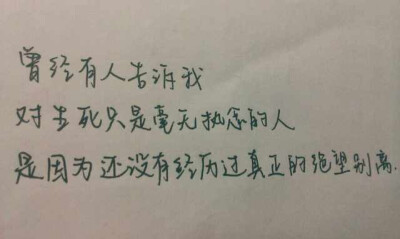 曾经有人告诉我
对生死只是毫无执念的人
是因为还没有经历过真正的绝望别离.